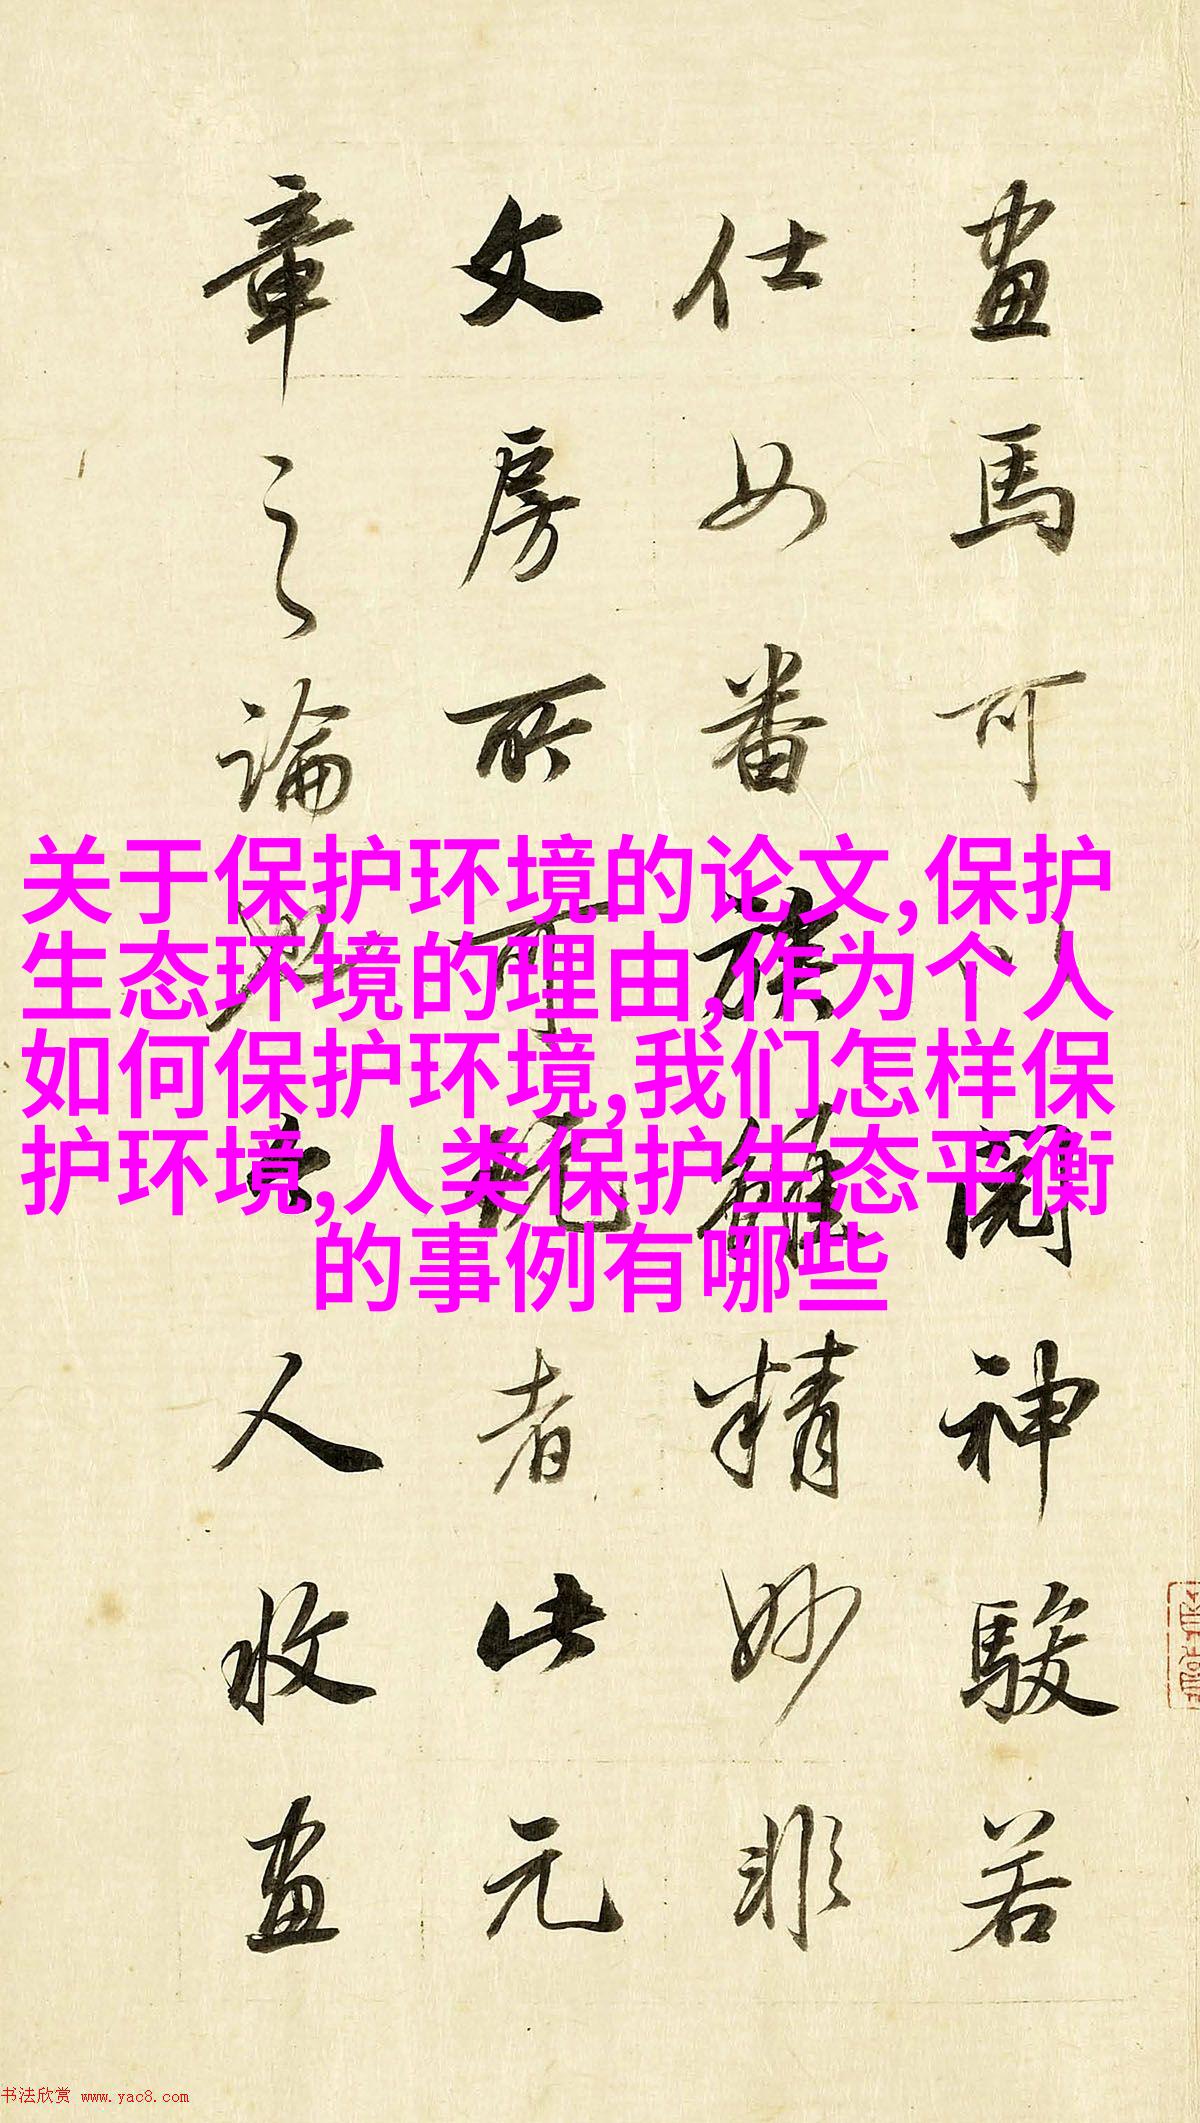 畫馬可以閱神駿若
仕女番族雖精妙非
文房所可玩者此元
章之論人收畫
关于保护环境的论文,保护
生态环境的理由,作为个人
如何保护环境,我们怎样保
护环境,人类保护生态平衡
的事例有哪些
书法欣赏 www.yac8.com